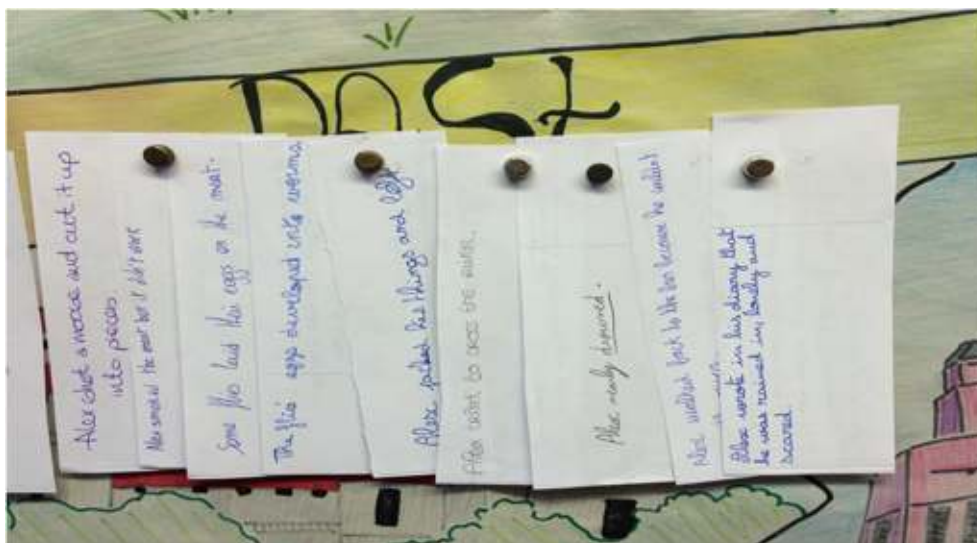 Past
Alex shot a moose and cut it up
into pieces
Alex smoked the meat but it didn't work
Some flies laid their eggs on the meat.
The flies eggs developed into worms.
Alex picked his things and left.
Alex nearly drowned.
Alex walked back to the bus because he couldn't
Alex wrote in his diary that
he was rained in, lonely and
scared